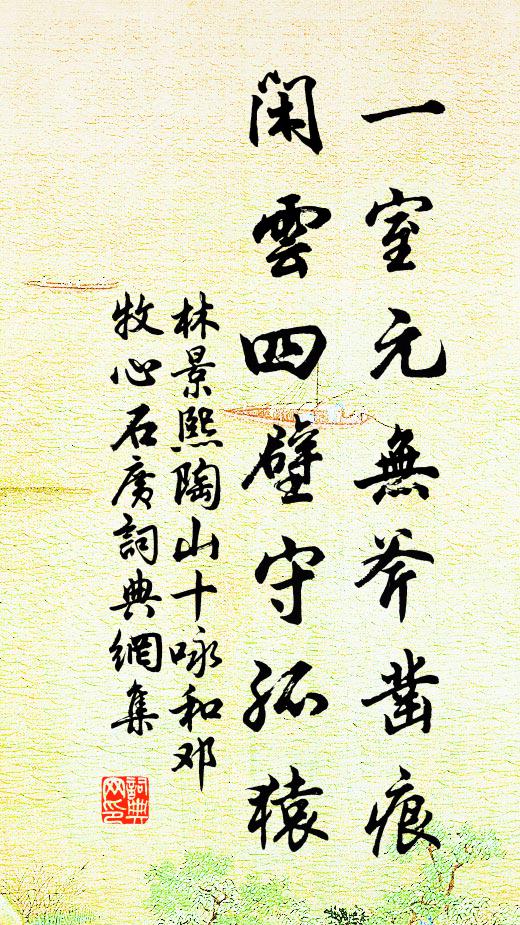 一室元無斧凿痕
閑雲四壁守孤猿
林景熙陶山十咏和邓
牧心石廣詞典網集
詞典網印